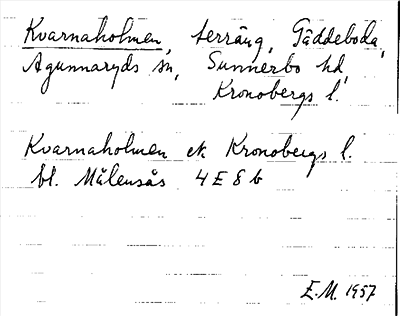 Kvarnaholmen, terräng, Gäddeboda,
Agunnaryds sn, Sunnerbo hd,
Kronobergs l.
Kvarnaholmen ek Kronobergs l.
bl. Målensås 4 E 8 b
E.M. 1957